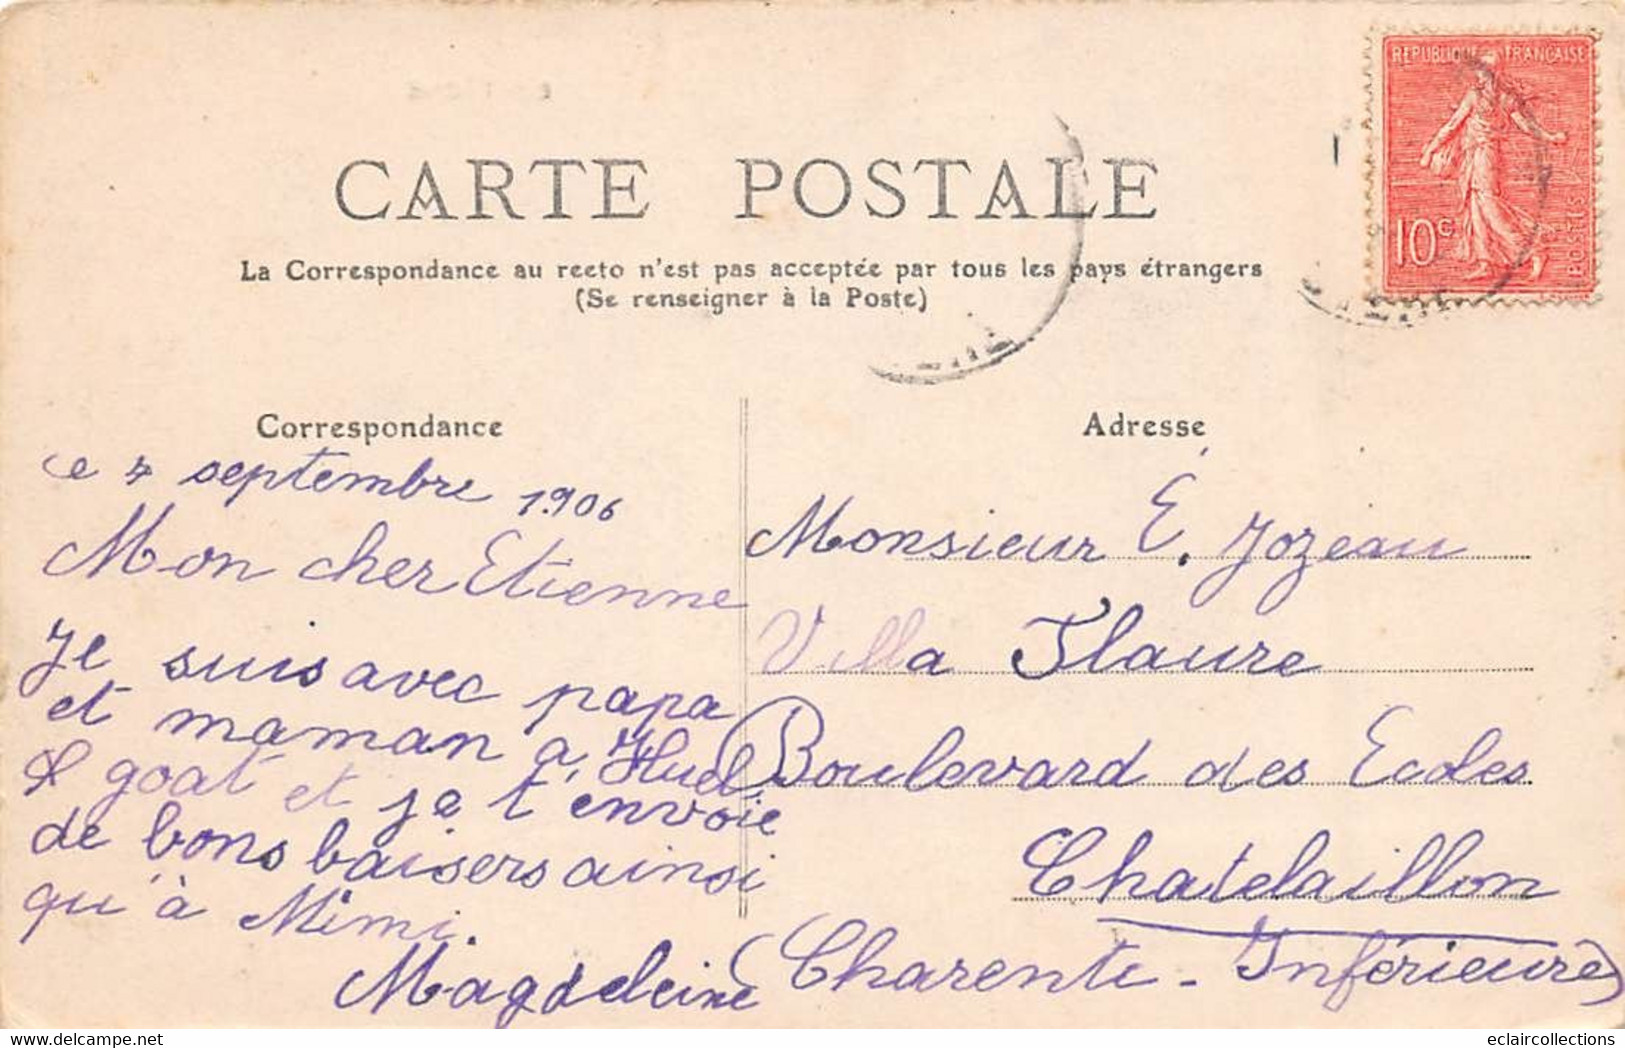 RÉPUBLIQUE FRANÇAISE
10c
POSTES
CARTE POSTALE
La Correspondance au recto n'est pas acceptée par tous les pays étrangers
(Se renseigner à la Poste)
Correspondance
Adresse
Le 4 septembre 1906
Mon cher Etienne
Je suis avec papa
et maman à Huel
goat et je t'envoie
de bons baisers ainsi
qu'à Mimi.
Magdeleine
Monsieur E. Jozeau
Villa Flaure
Boulevard des Ecoles
Chatelaillon
(Charente-Inférieure)
www.delcampe.net
eclaircollections